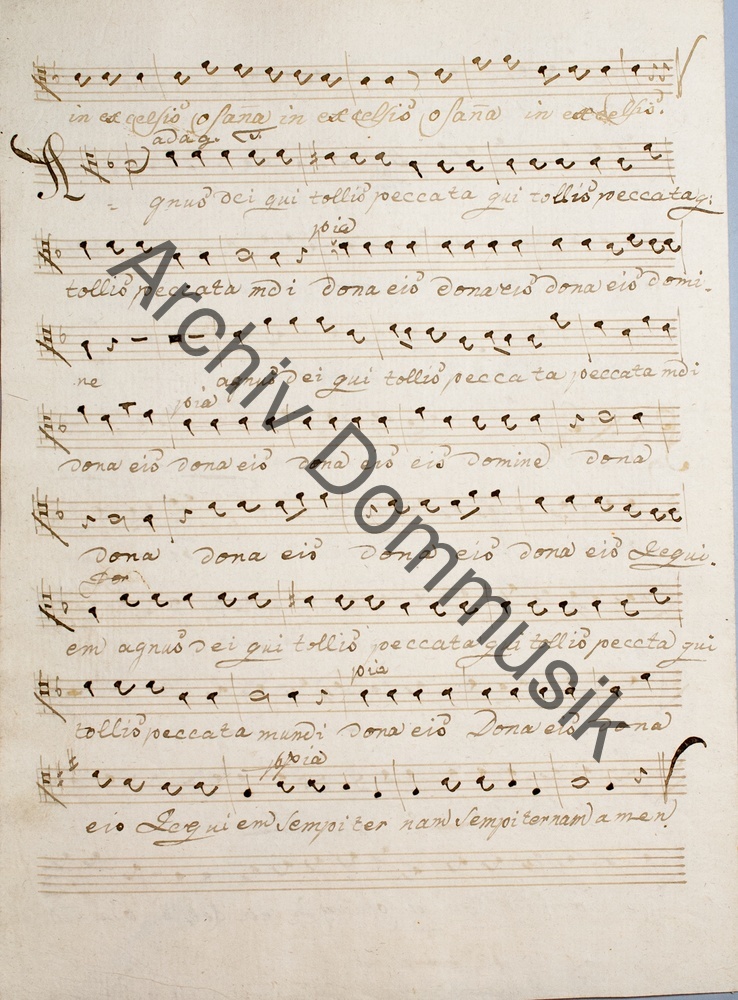 in excelsis osana in excelsis osaña in excelsis.
adag.
Agnus dei qui tollis peccata qui tollis peccata q:
pia
tollis peccata mdi dona eis dona eis dona eis domi-
ne agnus dei qui tollis peccata peccata mdi
pia
dona eis dona eis dona eis eis domine dona
dona dona eis dona eis dona eis Requi-
For
em agnus dei qui tollis peccata qui tollis peccta qui
pia
tollis peccata mundi dona eis Dona eis Dona
pia
eis Requiem sempiter nam sempiternam amen.
Archiv Dommusik